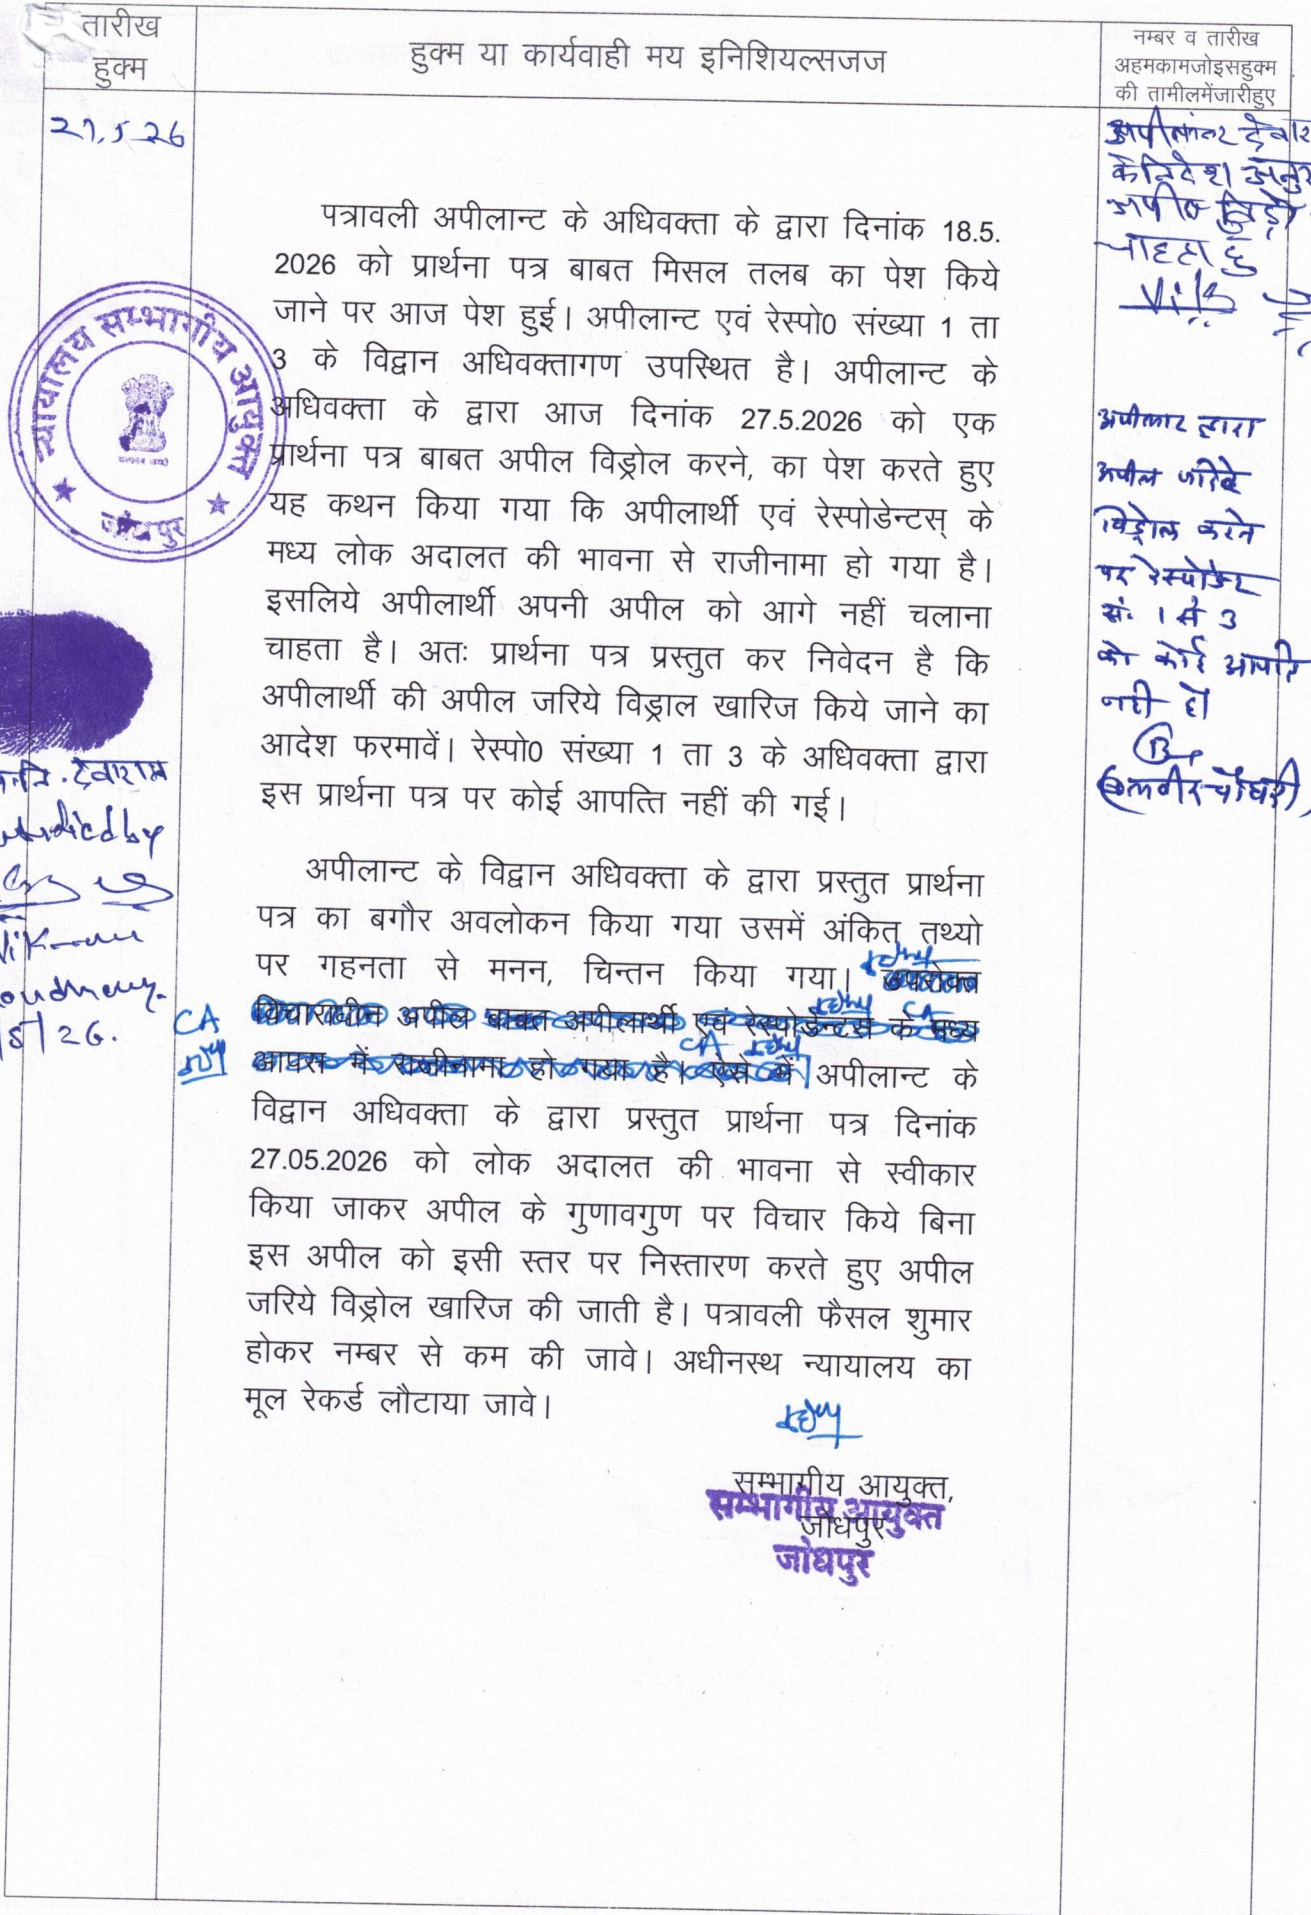 तारीख
हुक्म
हुक्म या कार्यवाही मय इनिशियल्सजज
नम्बर व तारीख
अहमकामजोइसहुक्म
की तामीलमेंजारीहुए
27.5.26
पत्रावली अपीलान्ट के अधिवक्ता के द्वारा दिनांक 18.5.
2026 को प्रार्थना पत्र बाबत मिसल तलब का पेश किये
जाने पर आज पेश हुई। अपीलान्ट एवं रेस्पो0 संख्या 1 ता
3 के विद्वान अधिवक्तागण उपस्थित है। अपीलान्ट के
अधिवक्ता के द्वारा आज दिनांक 27.5.2026 को एक
प्रार्थना पत्र बाबत अपील विड्रोल करने, का पेश करते हुए
यह कथन किया गया कि अपीलार्थी एवं रेस्पोडेन्टस् के
मध्य लोक अदालत की भावना से राजीनामा हो गया है।
इसलिये अपीलार्थी अपनी अपील को आगे नहीं चलाना
चाहता है। अतः प्रार्थना पत्र प्रस्तुत कर निवेदन है कि
अपीलार्थी की अपील जरिये विड्राल खारिज किये जाने का
आदेश फरमावें। रेस्पो0 संख्या 1 ता 3 के अधिवक्ता द्वारा
इस प्रार्थना पत्र पर कोई आपत्ति नहीं की गई।
अपीलान्ट के विद्वान अधिवक्ता के द्वारा प्रस्तुत प्रार्थना
पत्र का बगौर अवलोकन किया गया उसमें अंकित तथ्यो
पर गहनता से मनन, चिन्तन किया गया। उपरोक्त
विचाराधीन अपील बाबत अपीलार्थी एवं रेस्पोडेन्टस के मध्य
आपस में राजीनामा हो गया है। ऐसे में अपीलान्ट के
विद्वान अधिवक्ता के द्वारा प्रस्तुत प्रार्थना पत्र दिनांक
27.05.2026 को लोक अदालत की भावना से स्वीकार
किया जाकर अपील के गुणावगुण पर विचार किये बिना
इस अपील को इसी स्तर पर निस्तारण करते हुए अपील
जरिये विड्रोल खारिज की जाती है। पत्रावली फैसल शुमार
होकर नम्बर से कम की जावे। अधीनस्थ न्यायालय का
मूल रेकर्ड लौटाया जावे।
सम्भागीय आयुक्त,
जोधपुर
सम्भागीय आयुक्त
जोधपुर
न्यायालय सम्भागीय आयुक्त
जोधपुर
देवाराम
CA
CA
CA
के निर्देश
अपील
चाहता हुं
अपीलार द्वारा
अपील जरिये
विड्रोल करने
पर रेस्पोडेन्ट
सं. 1 से 3
को कोई आपत्ति
नही है।
चौधरी)